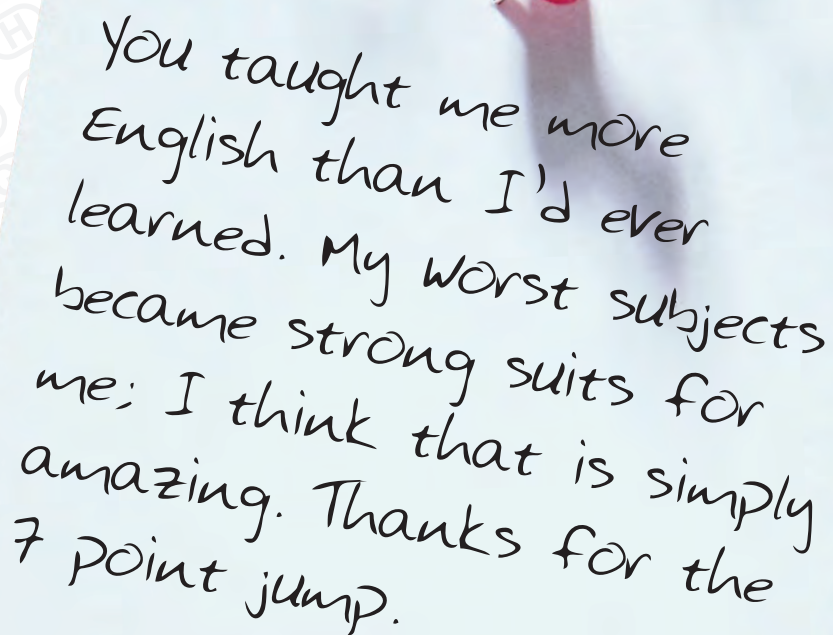 You taught me more
English than I'd ever
learned. My worst subjects
became strong suits for
me; I think that is simply
amazing. Thanks for the
7 point jump.